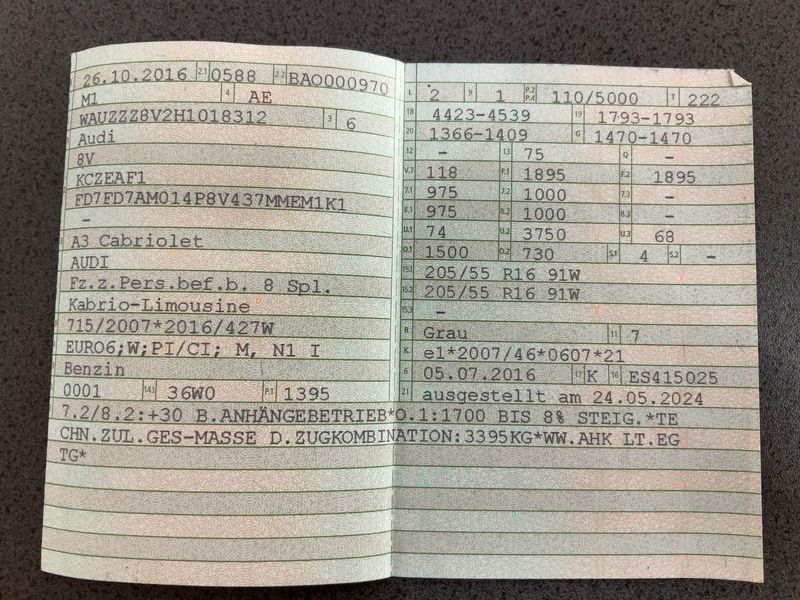 26.10.2016 2.1 0588 2.2 BAO000970
M1 4 AE
WAUZZZ8V2H1018312 3 6
Audi
8V
KCZEAF1
FD7FD7AM014P8V437MMEM1K1
-
A3 Cabriolet
AUDI
Fz.z.Pers.bef.b. 8 Spl.
Kabrio-Limousine
715/2007*2016/427W
EURO6;W;PI/CI; M, N1 I
Benzin
0001 14.1 36W0 P.1 1395
L 2 9 1 P.2 P.4 110/5000 T 222
18 4423-4539 19 1793-1793
20 1366-1409 G 1470-1470
12 - 13 75 Q -
V.7 118 F.1 1895 F.2 1895
7.1 975 7.2 1000 7.3 -
8.1 975 8.2 1000 8.3 -
U.1 74 U.2 3750 U.3 68
O.1 1500 O.2 730 S.1 4 S.2 -
15.1 205/55 R16 91W
15.2 205/55 R16 91W
15.3 -
R Grau 11 7
K e1*2007/46*0607*21
6 05.07.2016 17 K 16 ES415025
21 ausgestellt am 24.05.2024
7.2/8.2:+30 B.ANHÄNGEBETRIEB*O.1:1700 BIS 8% STEIG.*TE
CHN.ZUL.GES-MASSE D.ZUGKOMBINATION:3395KG*WW.AHK LT.EG
TG*